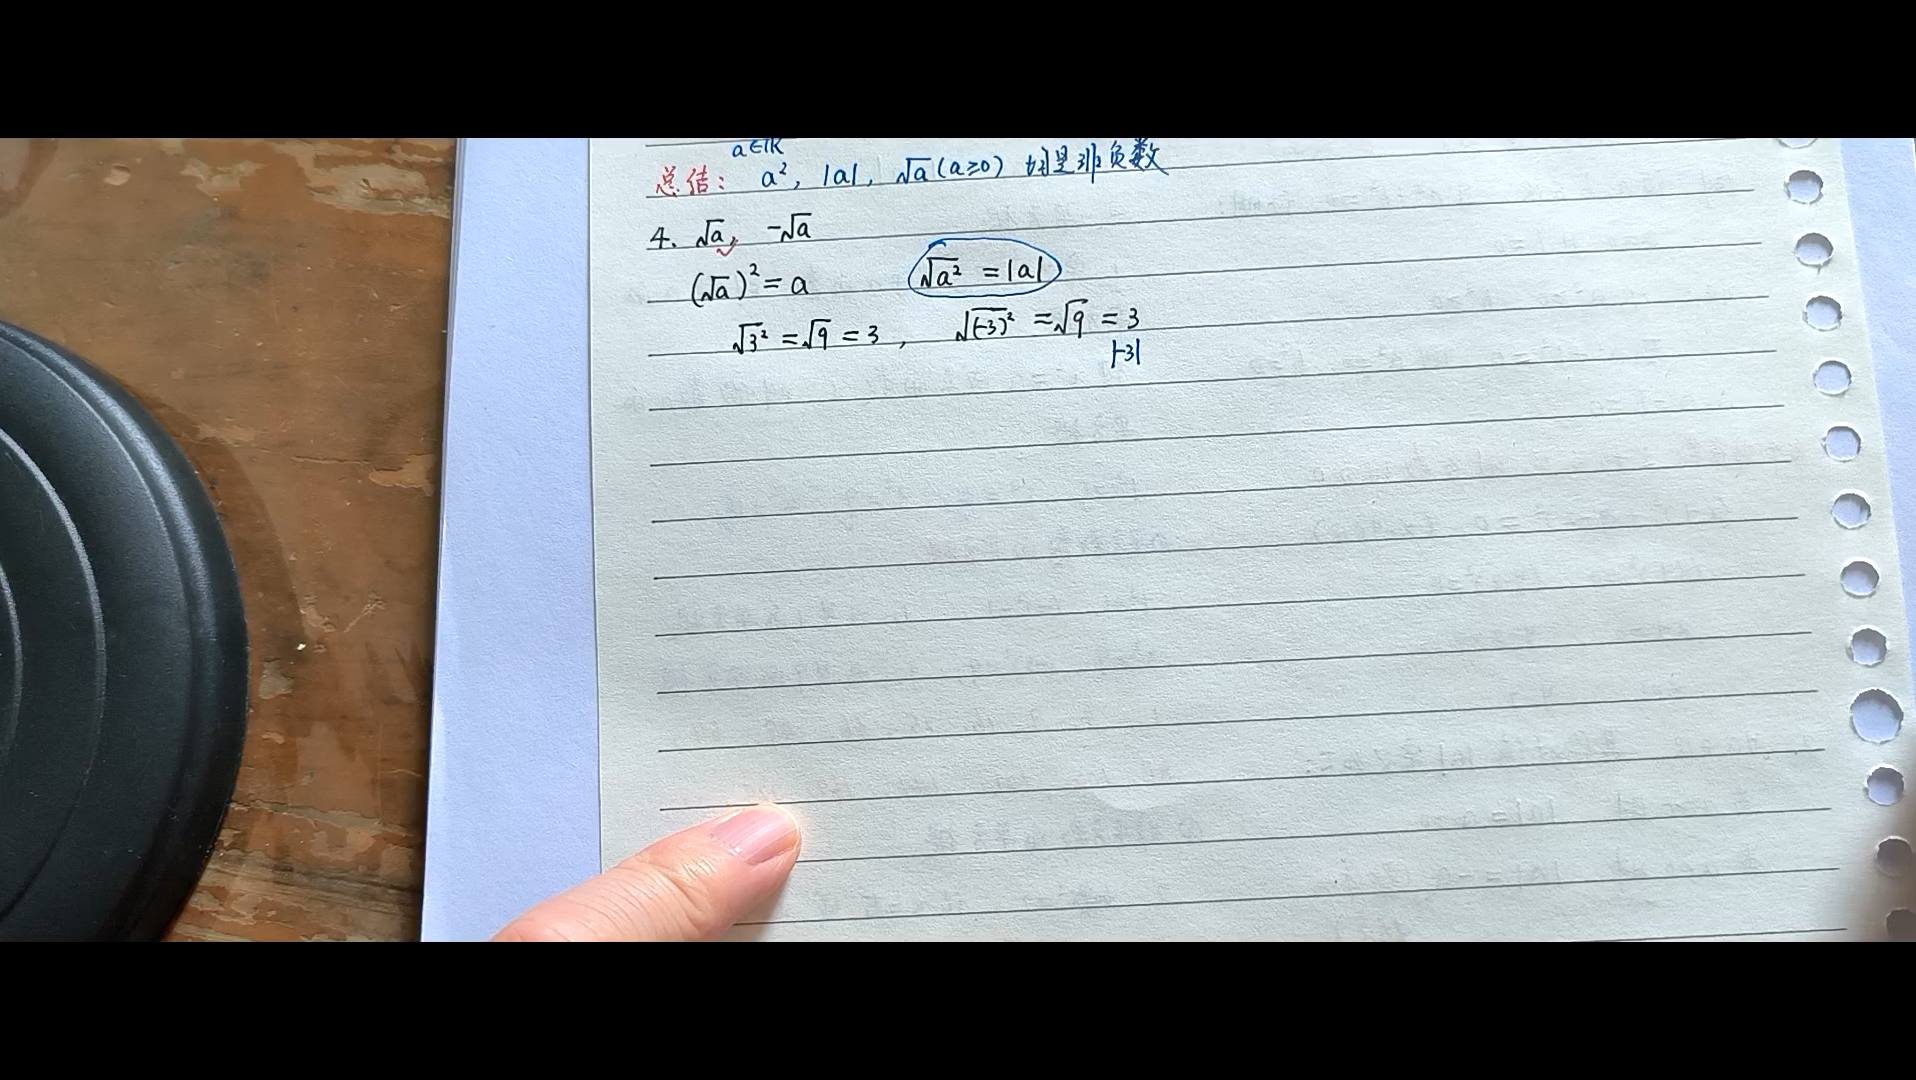 a∈ℝ
总结： a²，|a|，√a（a≥0）均是非负数
4. √a，-√a
(√a)²=a √a² =|a|
√3² =√9 =3， √(-3)² =√9 =3
|-3|